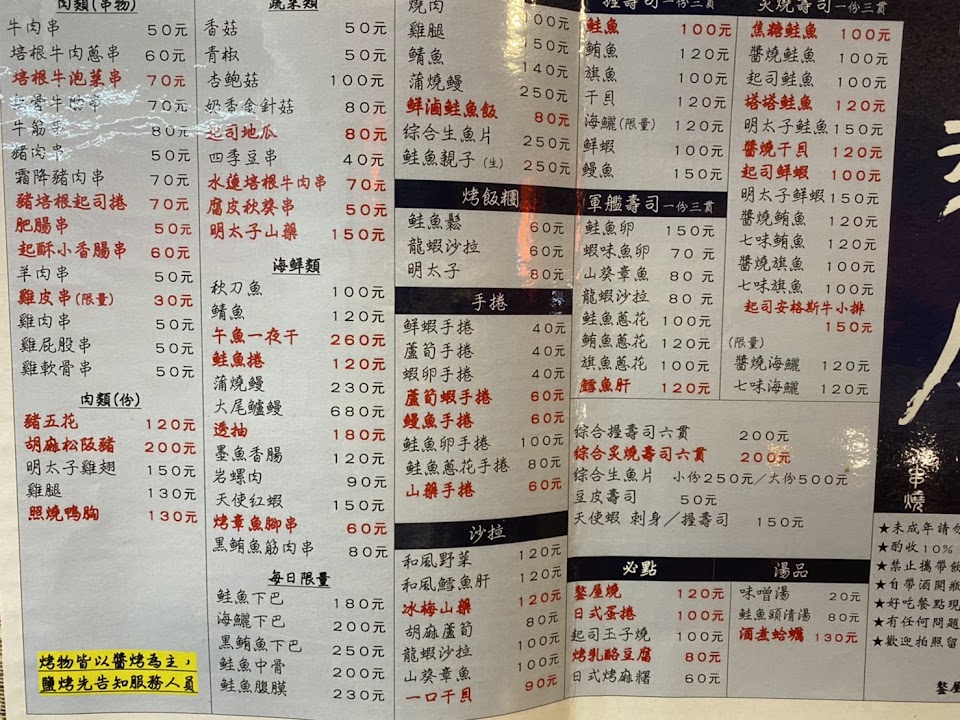 肉類(串物)
牛肉串 50元
培根牛肉蔥串 60元
培根牛泡菜串 70元
牛筋串 80元
豬肉串 50元
霜降豬肉串 70元
豬培根起司捲 70元
肥腸串 50元
起酥小香腸串 60元
羊肉串 50元
雞皮串(限量) 30元
雞肉串 50元
雞屁股串 50元
雞軟骨串 50元
肉類(份)
豬五花 120元
胡麻松阪豬 200元
明太子雞翅 150元
雞腿 130元
照燒鴨胸 130元
烤物皆以醬烤為主，
鹽烤先告知服務人員
蔬菜類
香菇 50元
青椒 50元
杏鮑菇 100元
奶香金針菇 80元
起司地瓜 80元
四季豆串 40元
水蓮培根牛肉串 70元
腐皮秋葵串 50元
明太子山藥 150元
海鮮類
秋刀魚 100元
鯖魚 120元
午魚一夜干 260元
鮭魚捲 120元
蒲燒鰻 230元
大尾鱸鰻 680元
透抽 180元
墨魚香腸 120元
岩螺肉 90元
天使紅蝦 150元
烤章魚腳串 60元
黑鮪魚筋肉串 80元
每日限量
鮭魚下巴 180元
海鱺下巴 200元
黑鮪魚下巴 250元
鮭魚中骨 200元
鮭魚腹膜 230元
燒肉 100元
雞腿 150元
鯖魚 140元
蒲燒鰻 250元
鮮滷鮭魚飯 80元
綜合生魚片 250元
鮭魚親子(生) 250元
烤飯糰
鮭魚鬆 60元
龍蝦沙拉 60元
明太子 80元
手捲
鮮蝦手捲 40元
蘆筍手捲 40元
蝦卵手捲 60元
蘆筍蝦手捲 60元
鰻魚手捲 60元
鮭魚卵手捲 100元
鮭魚蔥花手捲 80元
山藥手捲 60元
沙拉
和風野菜 120元
和風鱈魚肝 120元
冰梅山藥 120元
胡麻蘆筍 80元
龍蝦沙拉 100元
山葵章魚 80元
一口干貝 90元
握壽司一份三貫
鮭魚 100元
鮪魚 120元
旗魚 100元
干貝 120元
海鱺(限量) 120元
鮮蝦 100元
鰻魚 150元
軍艦壽司一份三貫
鮭魚卵 150元
蝦味魚卵 70元
山葵章魚 80元
龍蝦沙拉 80元
鮭魚蔥花 100元
鮪魚蔥花 120元
旗魚蔥花 100元
鱈魚肝 120元
炙燒壽司一份三貫
焦糖鮭魚 100元
醬燒鮭魚 100元
起司鮭魚 100元
塔塔鮭魚 120元
明太子鮭魚 150元
醬燒干貝 120元
起司鮮蝦 100元
明太子鮮蝦 150元
醬燒鮪魚 120元
七味鮪魚 120元
醬燒旗魚 100元
七味旗魚 100元
起司安格斯牛小排
150元
(限量)
醬燒海鱺 120元
七味海鱺 120元
綜合握壽司六貫 200元
綜合炙燒壽司六貫 200元
綜合生魚片 小份250元／大份500元
豆皮壽司 50元
天使蝦 刺身／握壽司 150元
必點
鏊屋燒 120元
日式蛋捲 100元
起司玉子燒 100元
烤乳酪豆腐 80元
日式烤麻糬 60元
湯品
味噌湯 20元
鮭魚頭清湯 80元
酒煮蛤蠣 130元
串燒
★未成年請勿
★酌收10%
★禁止攜帶飲
★自帶酒開瓶
★好吃餐點現
★有任何問題
★歡迎拍照留